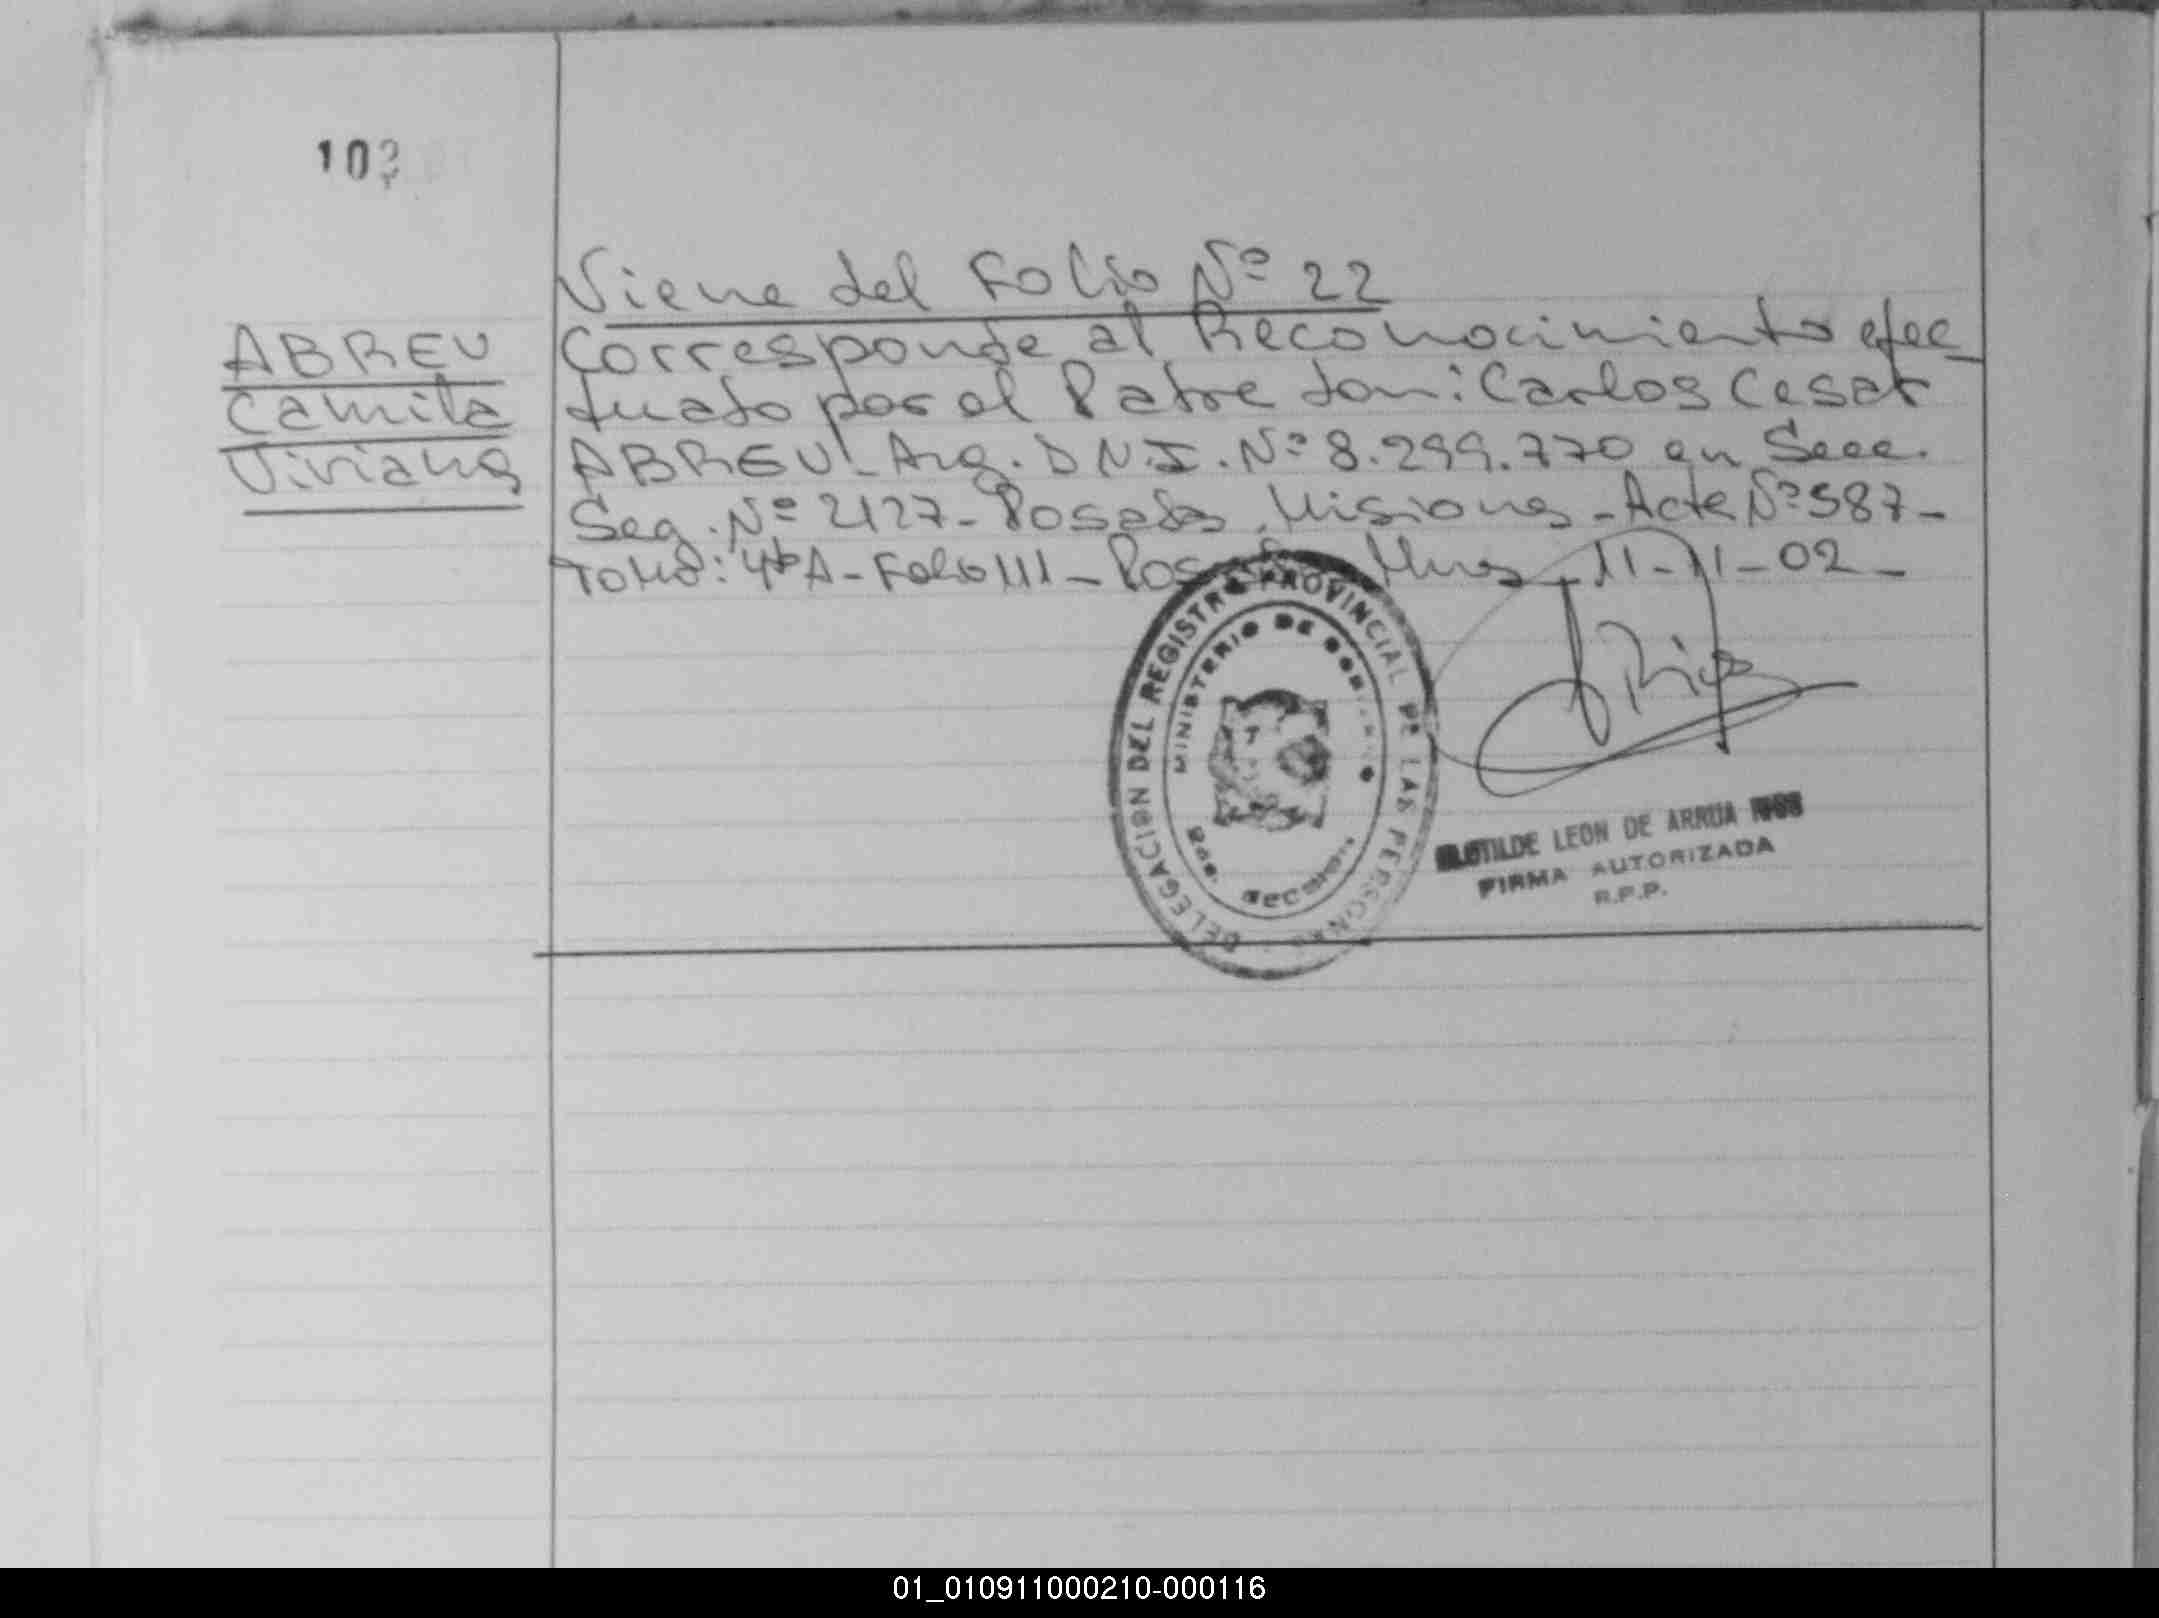 103
Viene del Folio Nº 22
ABREU
Camila
Viviana
Corresponde al Reconocimiento efec_
tuado por el Padre Don: Carlos Cesar
ABREU - Arg. D.N.I. Nº 8.299.770 en Secc.
Seg. Nº 2127 - Posadas, Misiones - Acta Nº 587 -
Tomo: 4to A - Folio 111 - Posadas, Mnes, 11-11-02 -
DELEGACION DEL REGISTRO PROVINCIAL DE LAS PERSONAS
MINISTERIO DE GOBIERNO
2da. SECCION
CLOTILDE LEON DE ARRUA RIOS
FIRMA AUTORIZADA
R.P.P.
01_010911000210-000116